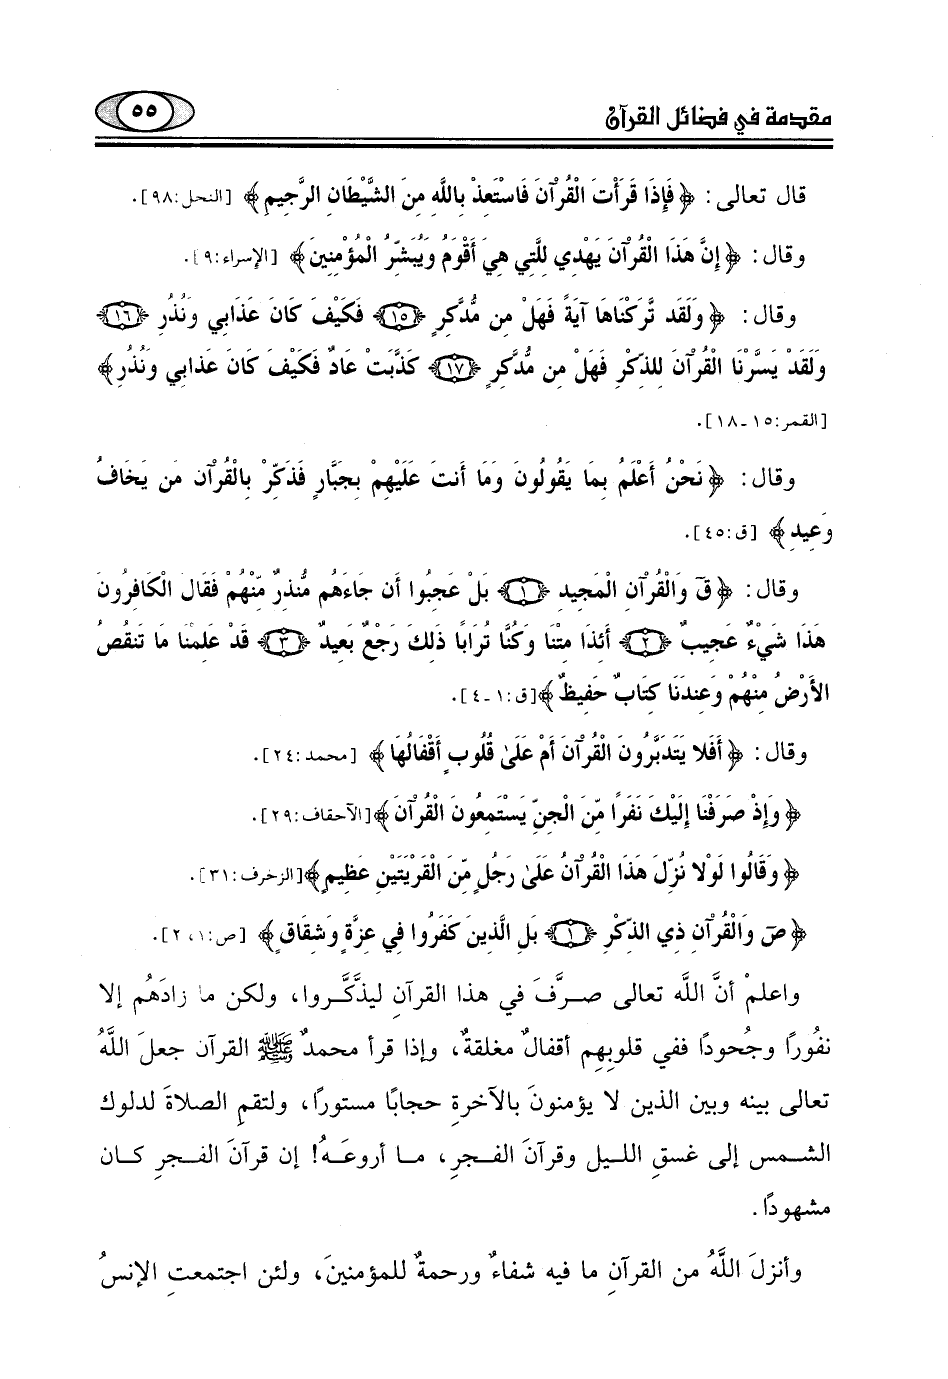 مقدمة في فضائل القرآن
٥٥
قال تعالى: ﴿فَإِذَا قَرَأْتَ الْقُرْآنَ فَاسْتَعِذْ بِاللَّهِ مِنَ الشَّيْطَانِ الرَّجِيمِ﴾ [النحل:٩٨].
وقال: ﴿إِنَّ هَذَا الْقُرْآنَ يَهْدِي لِلَّتِي هِيَ أَقْوَمُ وَيُبَشِّرُ الْمُؤْمِنِينَ﴾ [الإسراء:٩].
وقال: ﴿وَلَقَد تَّرَكْنَاهَا آيَةً فَهَلْ مِن مُّدَّكِرٍ ﴿١٥﴾ فَكَيْفَ كَانَ عَذَابِي وَنُذُرِ ﴿١٦﴾
وَلَقَدْ يَسَّرْنَا الْقُرْآنَ لِلذِّكْرِ فَهَلْ مِن مُّدَّكِرٍ ﴿١٧﴾ كَذَّبَتْ عَادٌ فَكَيْفَ كَانَ عَذَابِي وَنُذُرِ﴾
[القمر:١٥-١٨].
وقال: ﴿نَحْنُ أَعْلَمُ بِمَا يَقُولُونَ وَمَا أَنتَ عَلَيْهِمْ بِجَبَّارٍ فَذَكِّرْ بِالْقُرْآنِ مَن يَخَافُ
وَعِيدِ﴾ [ق:٤٥].
وقال: ﴿قَ وَالْقُرْآنِ الْمَجِيدِ ﴿١﴾ بَلْ عَجِبُوا أَن جَاءَهُم مُّنذِرٌ مِّنْهُمْ فَقَالَ الْكَافِرُونَ
هَذَا شَيْءٌ عَجِيبٌ ﴿٢﴾ أَئِذَا مِتْنَا وَكُنَّا تُرَابًا ذَلِكَ رَجْعٌ بَعِيدٌ ﴿٣﴾ قَدْ عَلِمْنَا مَا تَنقُصُ
الأَرْضُ مِنْهُمْ وَعِندَنَا كِتَابٌ حَفِيظٌ﴾[ق:١-٤].
وقال: ﴿أَفَلا يَتَدَبَّرُونَ الْقُرْآنَ أَمْ عَلَىٰ قُلُوبٍ أَقْفَالُهَا﴾ [محمد:٢٤].
﴿وَإِذْ صَرَفْنَا إِلَيْكَ نَفَرًا مِّنَ الْجِنِّ يَسْتَمِعُونَ الْقُرْآنَ﴾[الأحقاف:٢٩].
﴿وَقَالُوا لَوْلا نُزِّلَ هَذَا الْقُرْآنُ عَلَىٰ رَجُلٍ مِّنَ الْقَرْيَتَيْنِ عَظِيمٍ﴾[الزخرف:٣١].
﴿صَ وَالْقُرْآنِ ذِي الذِّكْرِ ﴿١﴾ بَلِ الَّذِينَ كَفَرُوا فِي عِزَّةٍ وَشِقَاقٍ﴾ [ص:١، ٢].
واعلمْ أنَّ اللَّه تعالى صرَّفَ في هذا القرآنِ ليذَّكَّروا، ولكن ما زادَهُم إلا
نفُورًا وجُحودًا ففي قلوبِهِم أقفالٌ مغلقةٌ، وإذا قرأ محمدٌ ﷺ القرآن جعلَ اللَّهُ
تعالى بينه وبين الذين لا يؤمنونَ بالآخرةِ حجابًا مستورًا، ولتقمِ الصلاةَ لدلوك
الشمس إلى غسقِ الليل وقرآنَ الفجرِ، ما أروعَهُ! إن قرآنَ الفجرِ كان
مشهودًا.
وأنزلَ اللَّهُ من القرآنِ ما فيه شفاءٌ ورحمةٌ للمؤمنينَ، ولئن اجتمعتِ الإنسُ